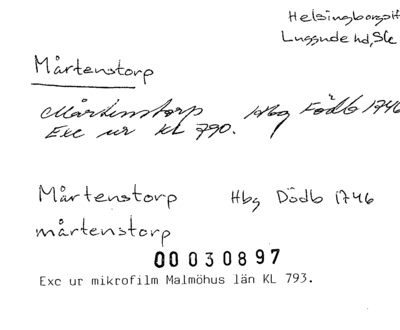 Helsingborgs
Luggude hd, Ske
Mårtenstorp
Mårtenstorp Hbg Födb 1746
Exc ur KL 790.
Mårtenstorp Hbg Dödb 1746
mårtenstorp
00 030897
Exc ur mikrofilm Malmöhus län KL 793.